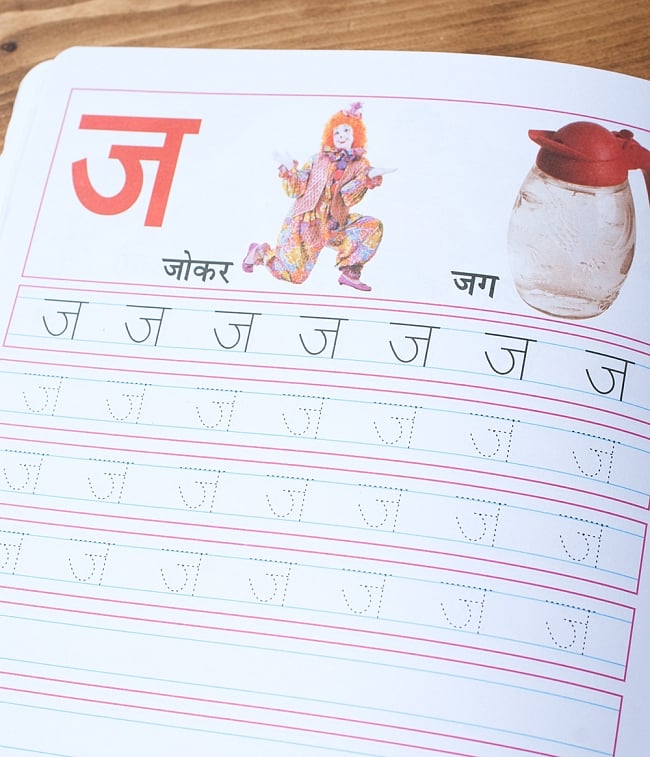 ज
जोकर
जग
ज ज ज ज ज ज ज
ज ज ज ज ज ज ज
ज ज ज ज ज ज ज
ज ज ज ज ज ज ज